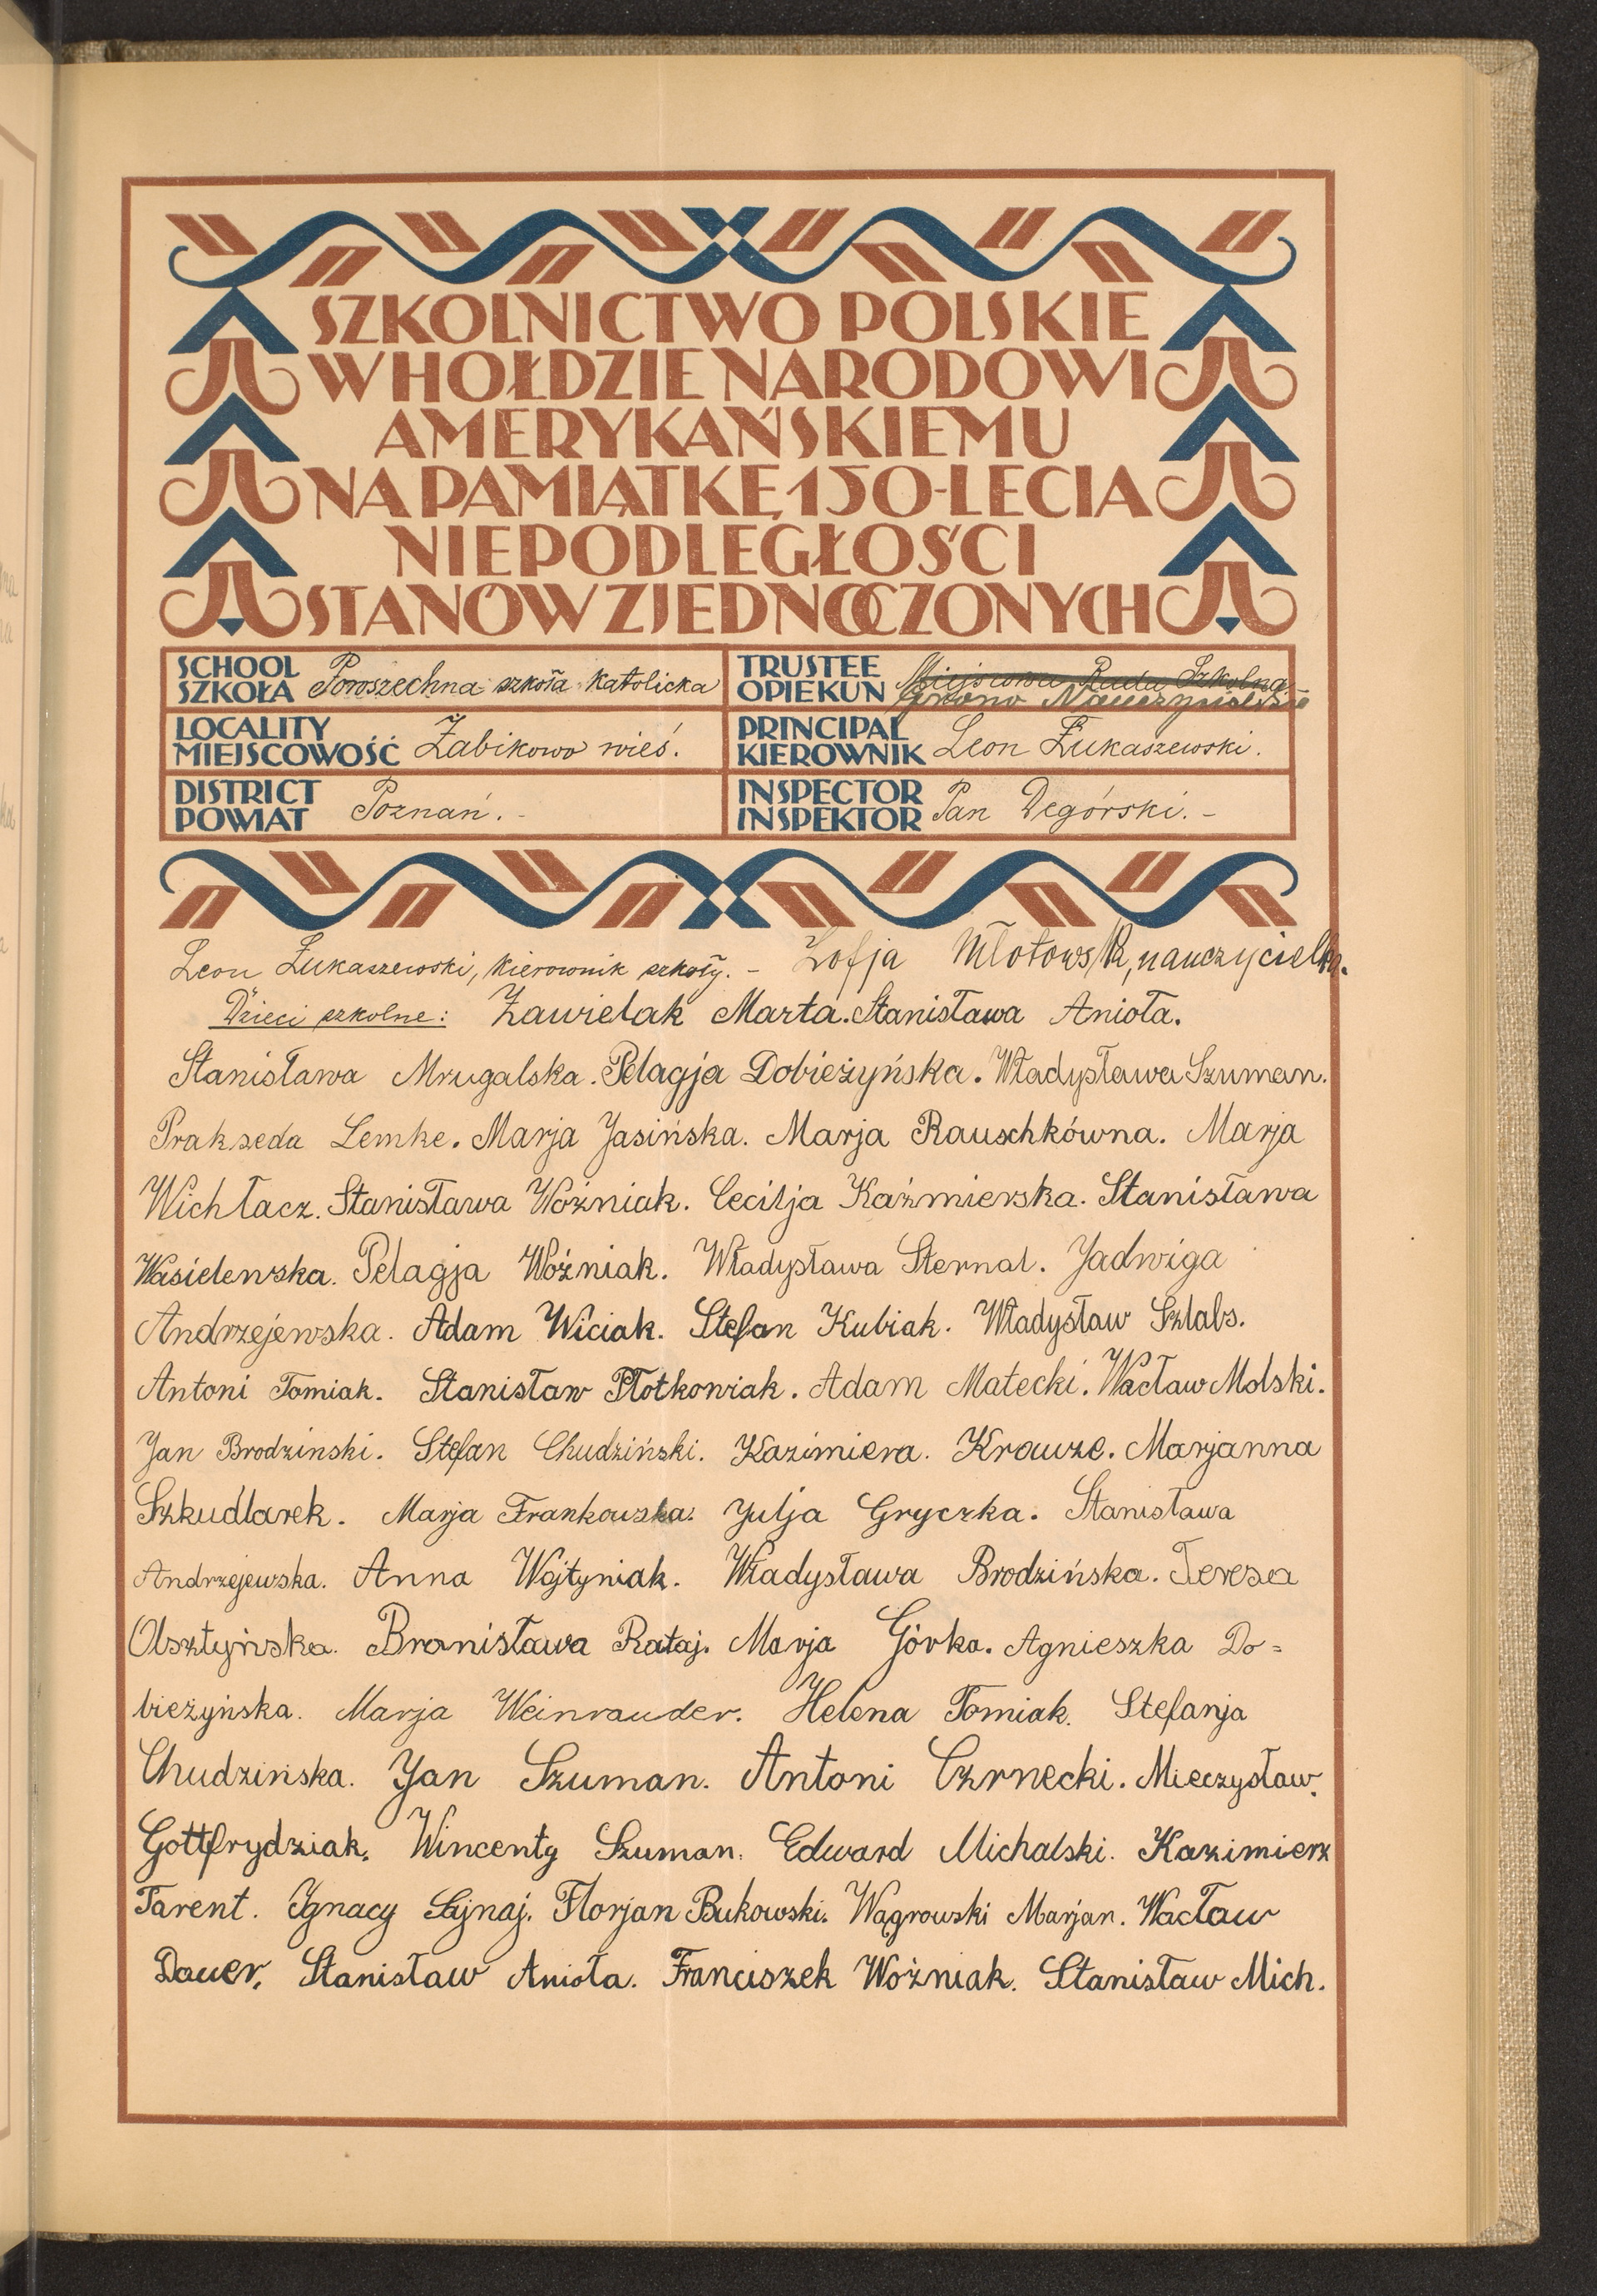 SZKOLNICTWO POLSKIE
W HOŁDZIE NARODOWI
AMERYKAŃSKIEMU
NA PAMIĄTKĘ 150-LECIA
NIEPODLEGŁOŚCI
STANÓW ZJEDNOCZONYCH
SCHOOL
SZKOŁA Powszechna szkoła katolicka
TRUSTEE
OPIEKUN Miejscowa Rada Szkolna
Grono Nauczycielskie
LOCALITY
MIEJSCOWOŚĆ Żabikowo wieś.
PRINCIPAL
KIEROWNIK Leon Łukaszewski.
DISTRICT
POWIAT Poznań. -
INSPECTOR
INSPEKTOR Pan Degórski. -
Leon Łukaszewski, kierownik szkoły. - Zofja Młotowska, nauczycielka.
Dzieci szkolne: Zawielak Marta. Stanisława Anioła.
Stanisława Mrugalska. Pelagja Dobieżyńska. Władysława Szuman.
Prakseda Lemke. Marja Jasińska. Marja Rauschkówna. Marja
Wichłacz. Stanisława Woźniak. Cecilja Kaźmierska. Stanisława
Wasielewska. Pelagja Woźniak. Władysława Sternal. Jadwiga
Andrzejewska. Adam Wiciak. Stefan Kubiak. Władysław Szlabs.
Antoni Tomiak. Stanisław Płotkowiak. Adam Matecki. Wacław Molski.
Jan Brodzinski. Stefan Chudziński. Kazimiera. Krauze. Marjanna
Szkudlarek. Marja Frankowska. Julja Gryczka. Stanisława
Andrzejewska. Anna Wojtyniak. Władysława Brodzińska. Teresa
Olsztyńska. Bronisława Rataj. Marja Górka. Agnieszka Do=
bieżyńska. Marja Weinrauder. Helena Tomiak. Stefanja
Chudzińska. Jan Szuman. Antoni Czrnecki. Mieczysław.
Gottfrydziak. Wincenty Szuman. Edward Michalski. Kazimierz
Tarent. Ignacy Łajnaj. Florjan Bukowski. Wągrowski Marjan. Wacław
Dauer. Stanisław Anioła. Franciszek Woźniak. Stanisław Mich.